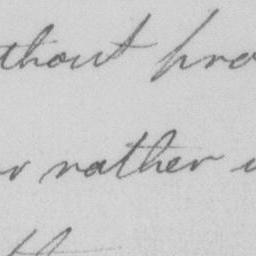 thout pro
or rather